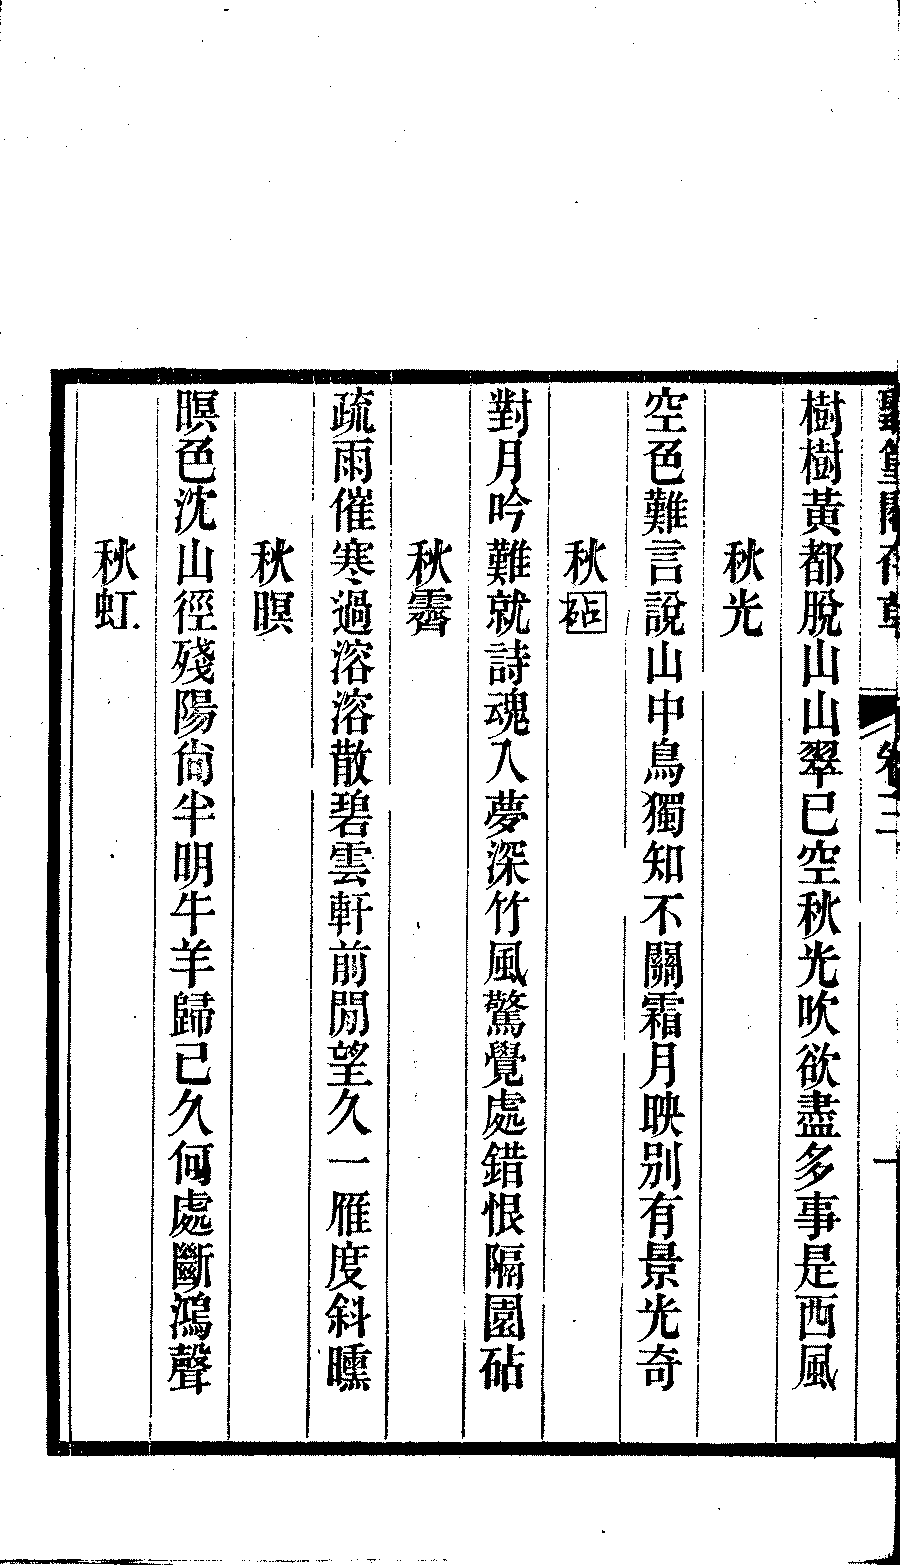 樹樹黃都脫山山翠已空秋光吹欲盡多事是西風
秋光
空色難言說山中鳥獨知不關霜月映別有景光奇
秋砧
對月吟難就詩魂入夢深竹風驚覺處錯恨隔園砧
秋霽
疏雨催寒過溶溶散碧雲軒前閒望久一雁度斜曛
秋暝
暝色沈山徑殘陽尙半明牛羊歸已久何處斷鴻聲
秋虹